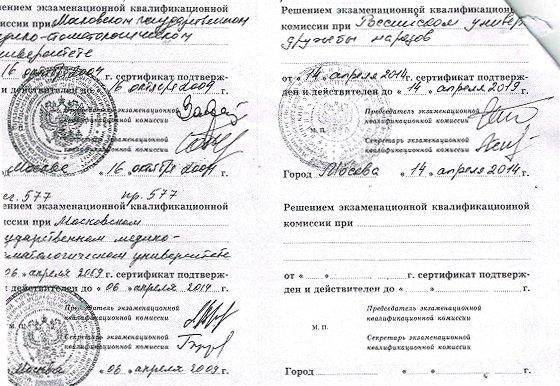 Решением экзаменационной квалификационной
комиссии при Московском государственном
медико-стоматологическом
университете
16 октября 2004 г. сертификат подтверж-
ден и действителен до « 16 октября 2009 г.
Председатель экзаменационной
квалификационной комиссии
Секретарь экзаменационной
квалификационной комиссии
Москва « 16 октября 2004 г.
577 пр. 577
нием экзаменационной квалификационной
ссии при Московском
государственном медико-
матологическом университете
06 » апреля 2009 г. сертификат подтверж-
действителен до « 06 » апреля 2014 г.
Председатель экзаменационной
квалификационной комиссии
М. П.
Секретарь экзаменационной
квалификационной комиссии
Москва « 06 » апреля 2009 г.
Решением экзаменационной квалификационной
комиссии при Российском универ
дружбы народов
от « 14 » апреля 2014 г. сертификат подтверж-
ден и действителен до « 14 » апреля 2019 г.
Председатель экзаменационной
квалификационной комиссии
М. П.
Секретарь экзаменационной
квалификационной комиссии
Город Москва « 14 » апреля 2014 г.
Решением экзаменационной квалификационной
комиссии при
от « » г. сертификат подтверж-
ден и действителен до « » г.
Председатель экзаменационной
квалификационной комиссии
М. П.
Секретарь экзаменационной
квалификационной комиссии
Город « » г.